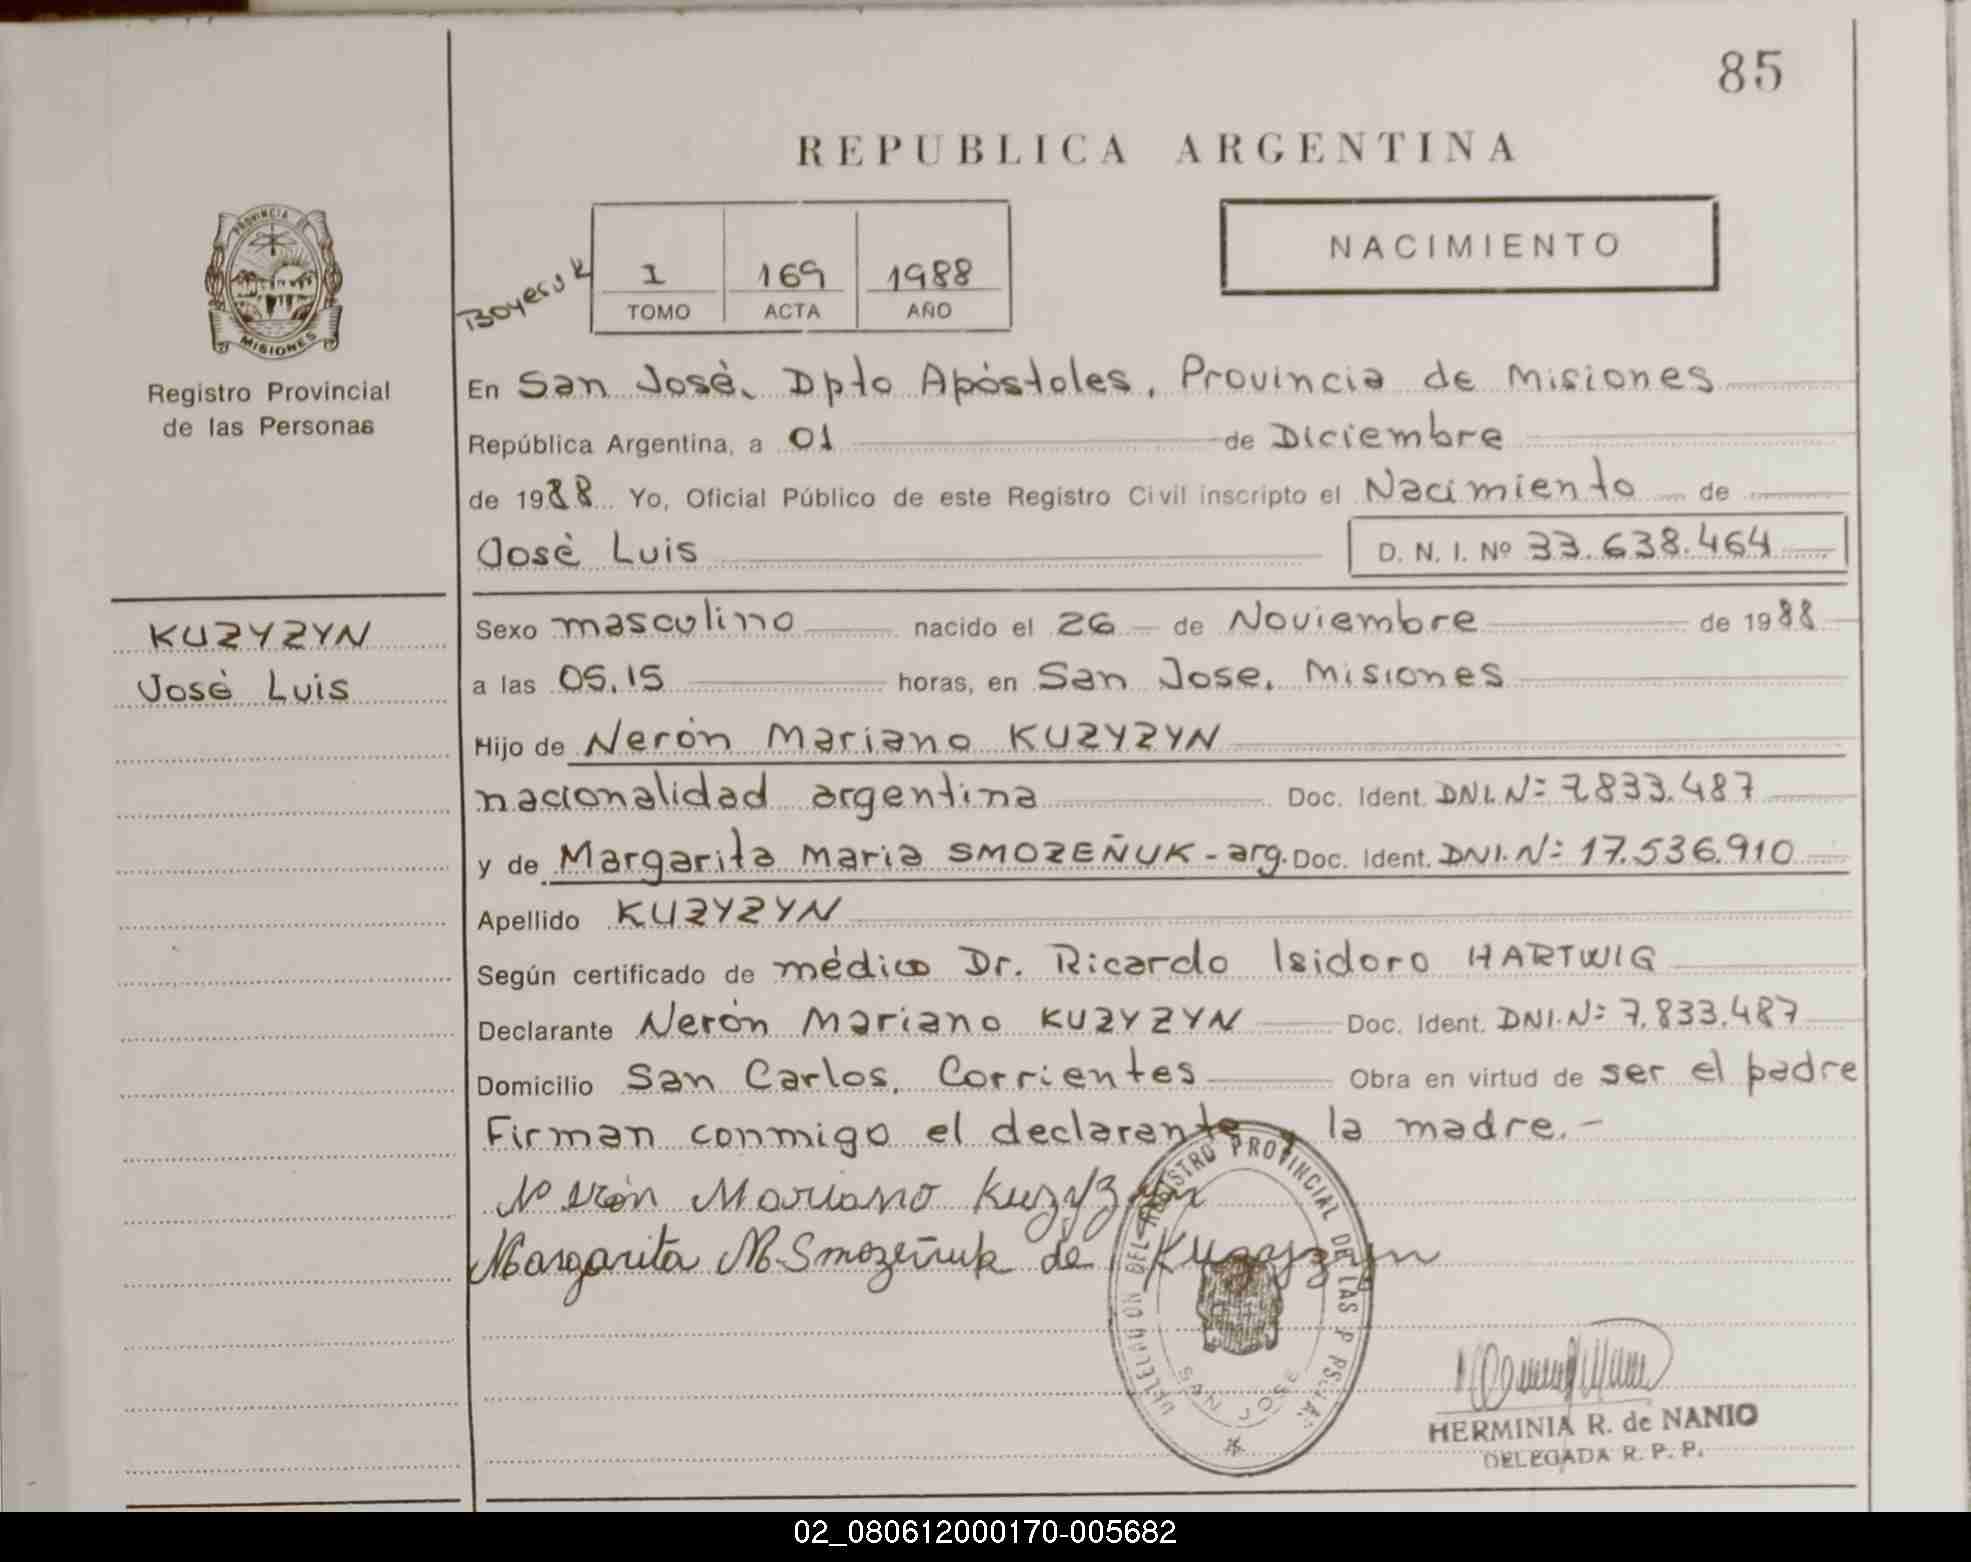 85
REPUBLICA ARGENTINA
NACIMIENTO
Boyeruk
I 169 1988
TOMO ACTA AÑO
PROVINCIA
MISIONES
Registro Provincial
de las Personas
En San José, Dpto Apóstoles, Provincia de Misiones
República Argentina, a 01 de Diciembre
de 1988 Yo, Oficial Público de este Registro Civil inscripto el Nacimiento de
José Luis D. N. I. Nº 33.638.464
KUZYZYN
José Luis
Sexo masculino nacido el 26 de Noviembre de 1988
a las 05.15 horas, en San Jose, Misiones
Hijo de Nerón Mariano KUZYZYN
nacionalidad argentina Doc. Ident. DNI.Nº 7.833.487
y de Margarita Maria SMOZEÑUK - arg. Doc. Ident. DNI.Nº 17.536.910
Apellido KUZYZYN
Según certificado de médico Dr. Ricardo Isidoro HARTWIG
Declarante Nerón Mariano KUZYZYN Doc. Ident. DNI.Nº 7.833.487
Domicilio San Carlos, Corrientes Obra en virtud de ser el padre
Firman conmigo el declarante y la madre.-
Nerón Mariano Kuzyzyn
Margarita M. Smozeñuk de Kuzyzyn
DEL REGISTRO PROVINCIAL DE LAS
HERMINIA R. de NANIO
DELEGADA R. P. P.
02_080612000170-005682